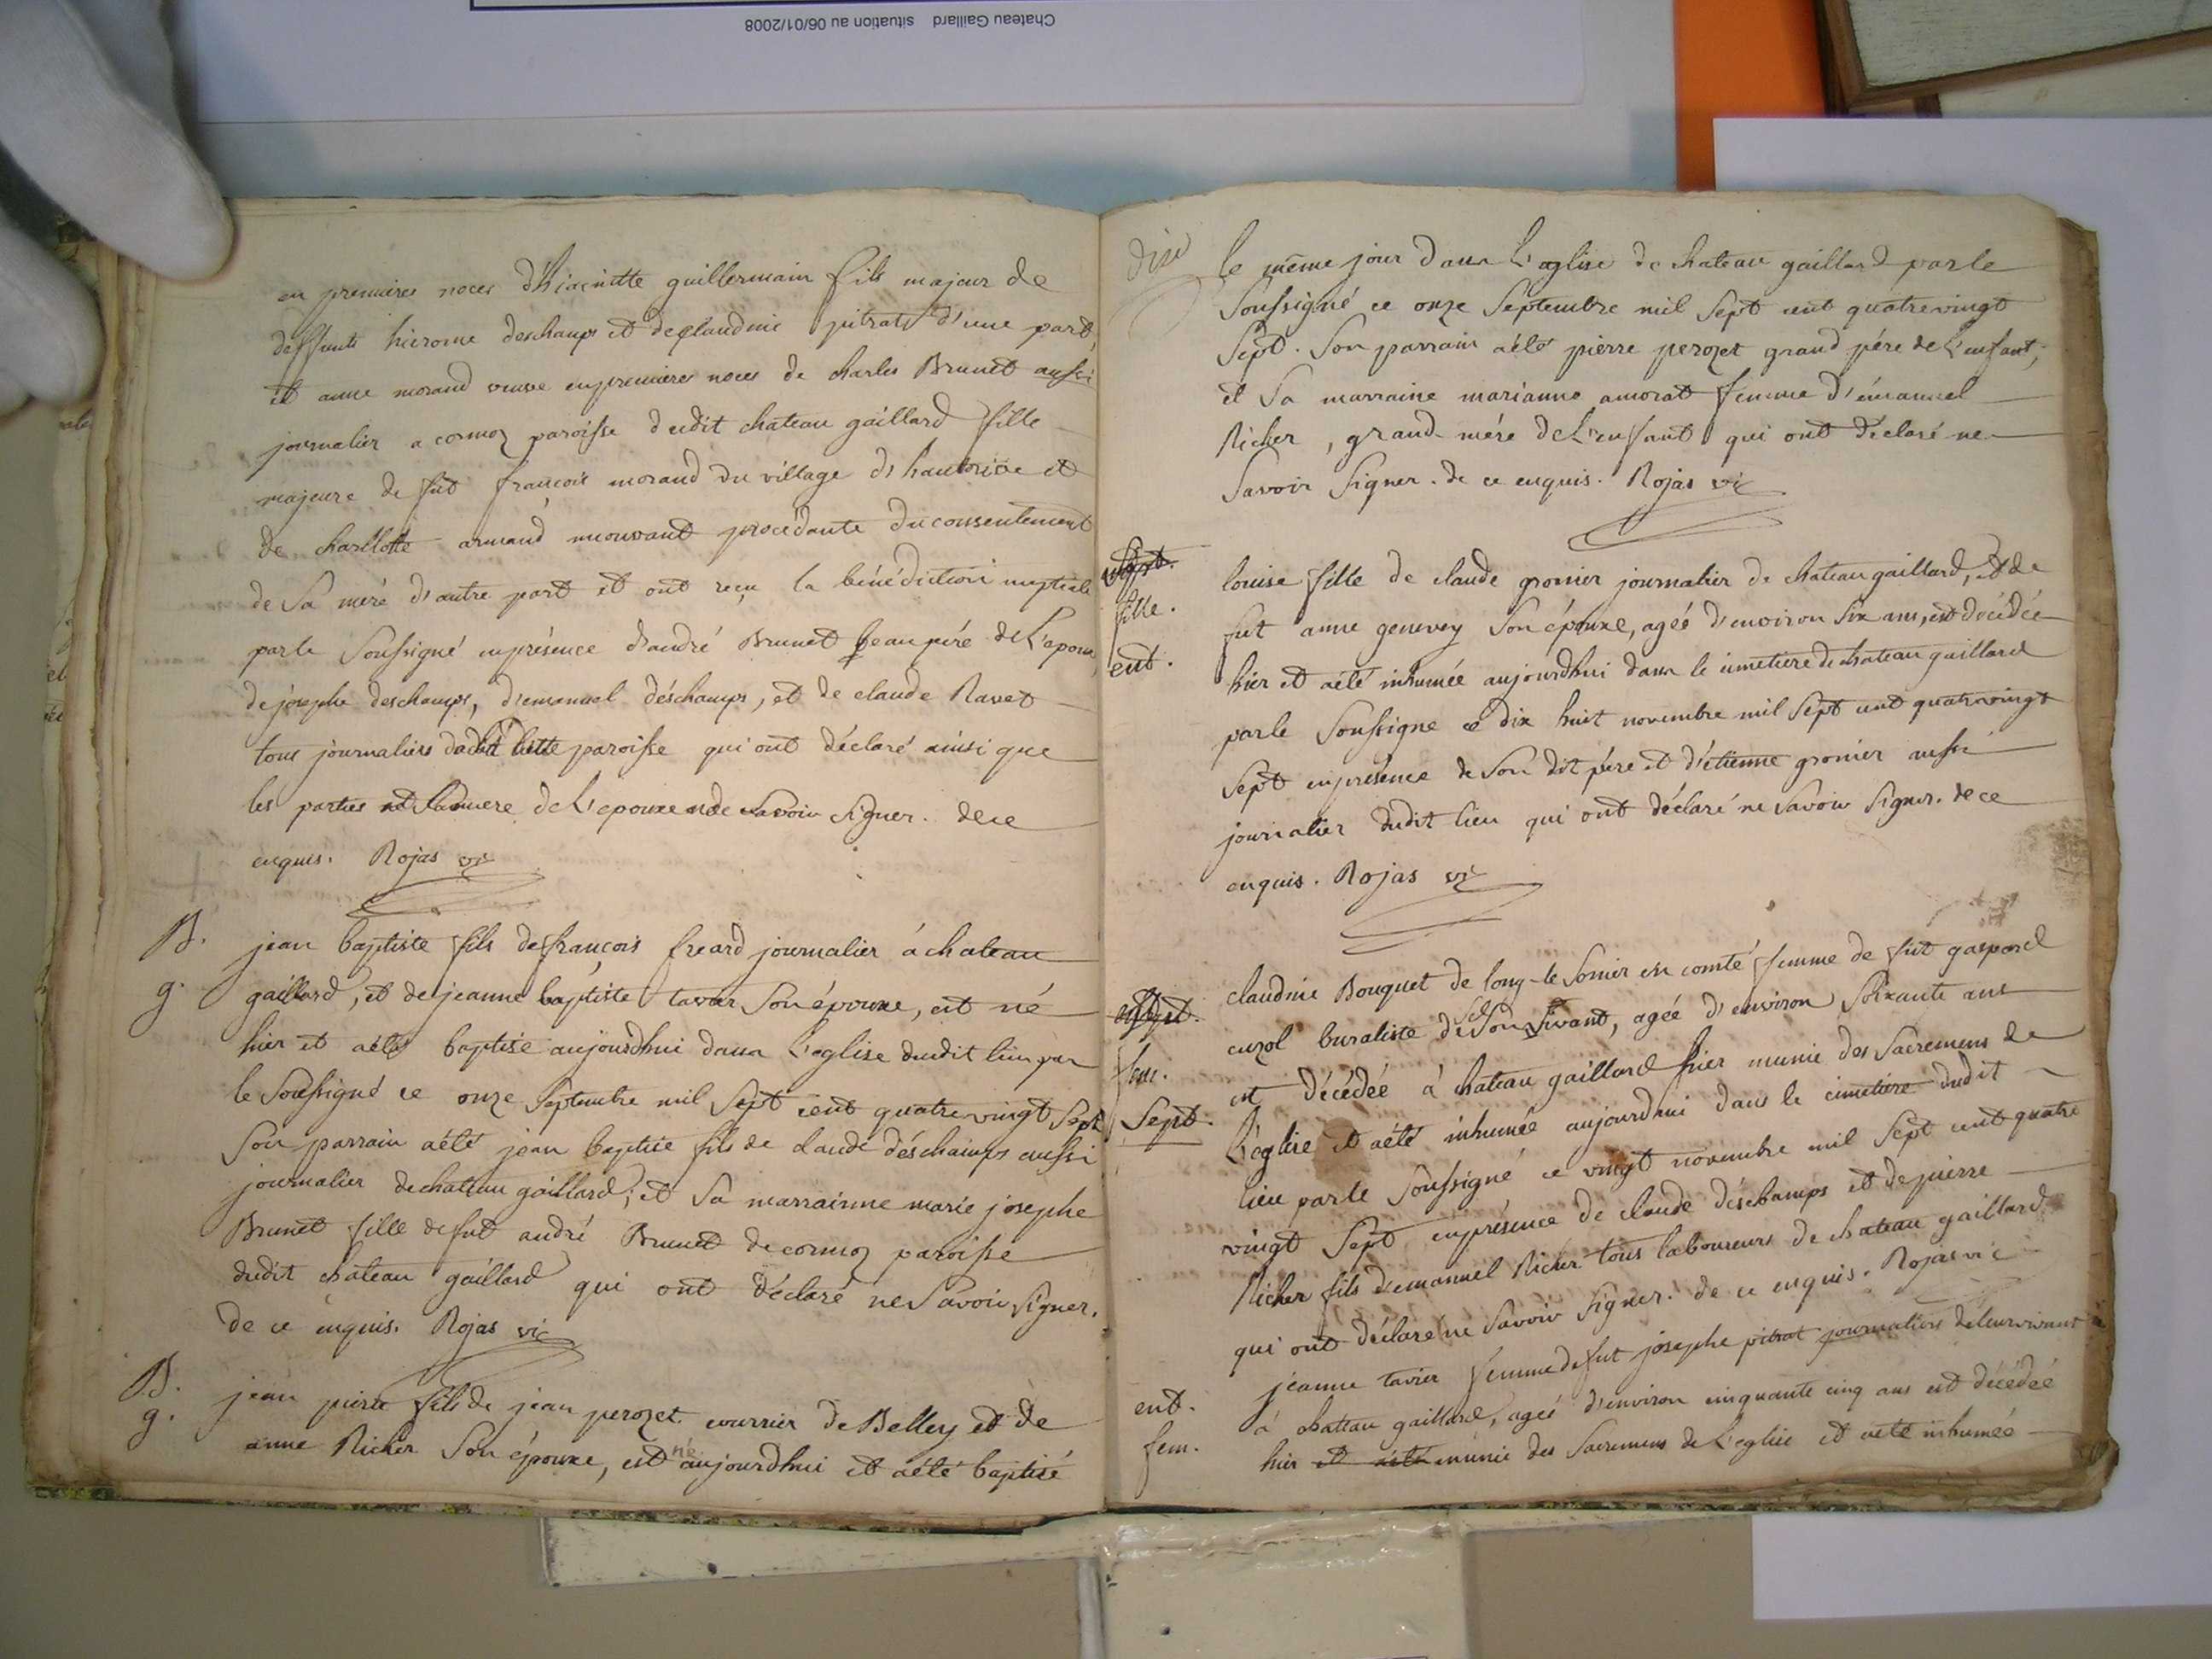 Chateau Gaillard situation au 06/01/2008
en premieres noces d'hiacintte guillermain fils majeur de
deffunts hierome deschamps et de claudine pitrat d'une part,
et anne morand veuve en premieres noces de charles Brunet aussi
journalier a cormoz paroisse dudit chateau gaillard fille
majeure de fut françois morand du village d'hauterive et
de charllotte armand mouvant procédante du consentement
de sa meré d'autre part et ont reçu la bénédiction nuptiale
par le soussigné en présence d'andré Brunet beau péré de L'epoux,
de josephe deschamps, d'emanuel déschamps, et de claude Ravet
tous journaliers paroisse qui ont déclaré ainsi que
les parties et la mere de L'epouxe ne savoir signer. de ce
enquis. Rojas vic
B. jean baptiste fils de françois freard journalier á chateau
g. gaillard, et de jeanne baptiste tavier son épouxe, est né
hier et aété baptisé aujourdhui dans L'eglise dudit lieu par
le soussigné ce onze septembre mil sept cent quatre vingt sept
son parrain aété jean baptiste fils de claude déschamps aussi
journalier de chateau gaillard; et sa marrainne marie josephe
Brunet fille de fut andré Brunet de cormoz paroisse
dudit chateau gaillard qui ont déclaré ne savoir signer.
de ce enquis. Rojas vic
B. jean pierre fils de jean perozet courrier de Belley et de
g. anne Richer son épouxe, est né aujourdhui et aété baptisé
le même jour dans L'eglise de chateau gaillard par le
soussigné ce onze septembre mil sept cent quatrevingt
sept. son parrain aété pierre perozet grand pére de L'enfant,
et sa marraine marianne amorat femme d'émanuel
Richer, grand-mére de L'enfant qui ont déclaré ne
savoir signer. de ce enquis. Rojas vic
sept.
fille.
ent.
louise fille de claude gronier journalier de chateau gaillard, et de
fut anne genevey son épouxe, agéé d'environ six ans, est décédée
hier et aété inhumée aujourdhui dans le cimetiere de chateau gaillard
par le soussigné ce dix huit novembre mil sept cent quatrevingt
sept en présence de son dit pére et d'étienne gronier aussi
journalier dudit lieu qui ont déclaré ne savoir signer. de ce
enquis. Rojas vic
fem.
sept.
claudine Bouquet de long-le Sonier en comté femme de fut gaspard
cuzol buraliste de son vivant, agéé d'environ soixante ans
est décédéé á chateau gaillard hier munie des sacremens de
L'église et aété inhumée aujourdhui dans le cimetiére dudit
lieu par le soussigné ce vingt novembre mil sept cent quatre
vingt sept en présence de claude déschamps et de pierre
Richer fils d'emanuel Richer tous laboureurs de chateau gaillard
qui ont déclaré ne savoir signer. de ce enquis. Rojas vic
ent.
fem.
jeanne tavier femme de fut josephe pitrat journaliers de leur vivant
á chateau gaillard, agéé d'environ cinquante cinq ans est décédéé
hier et aété munie des sacremens de L'eglise et aété inhuméé